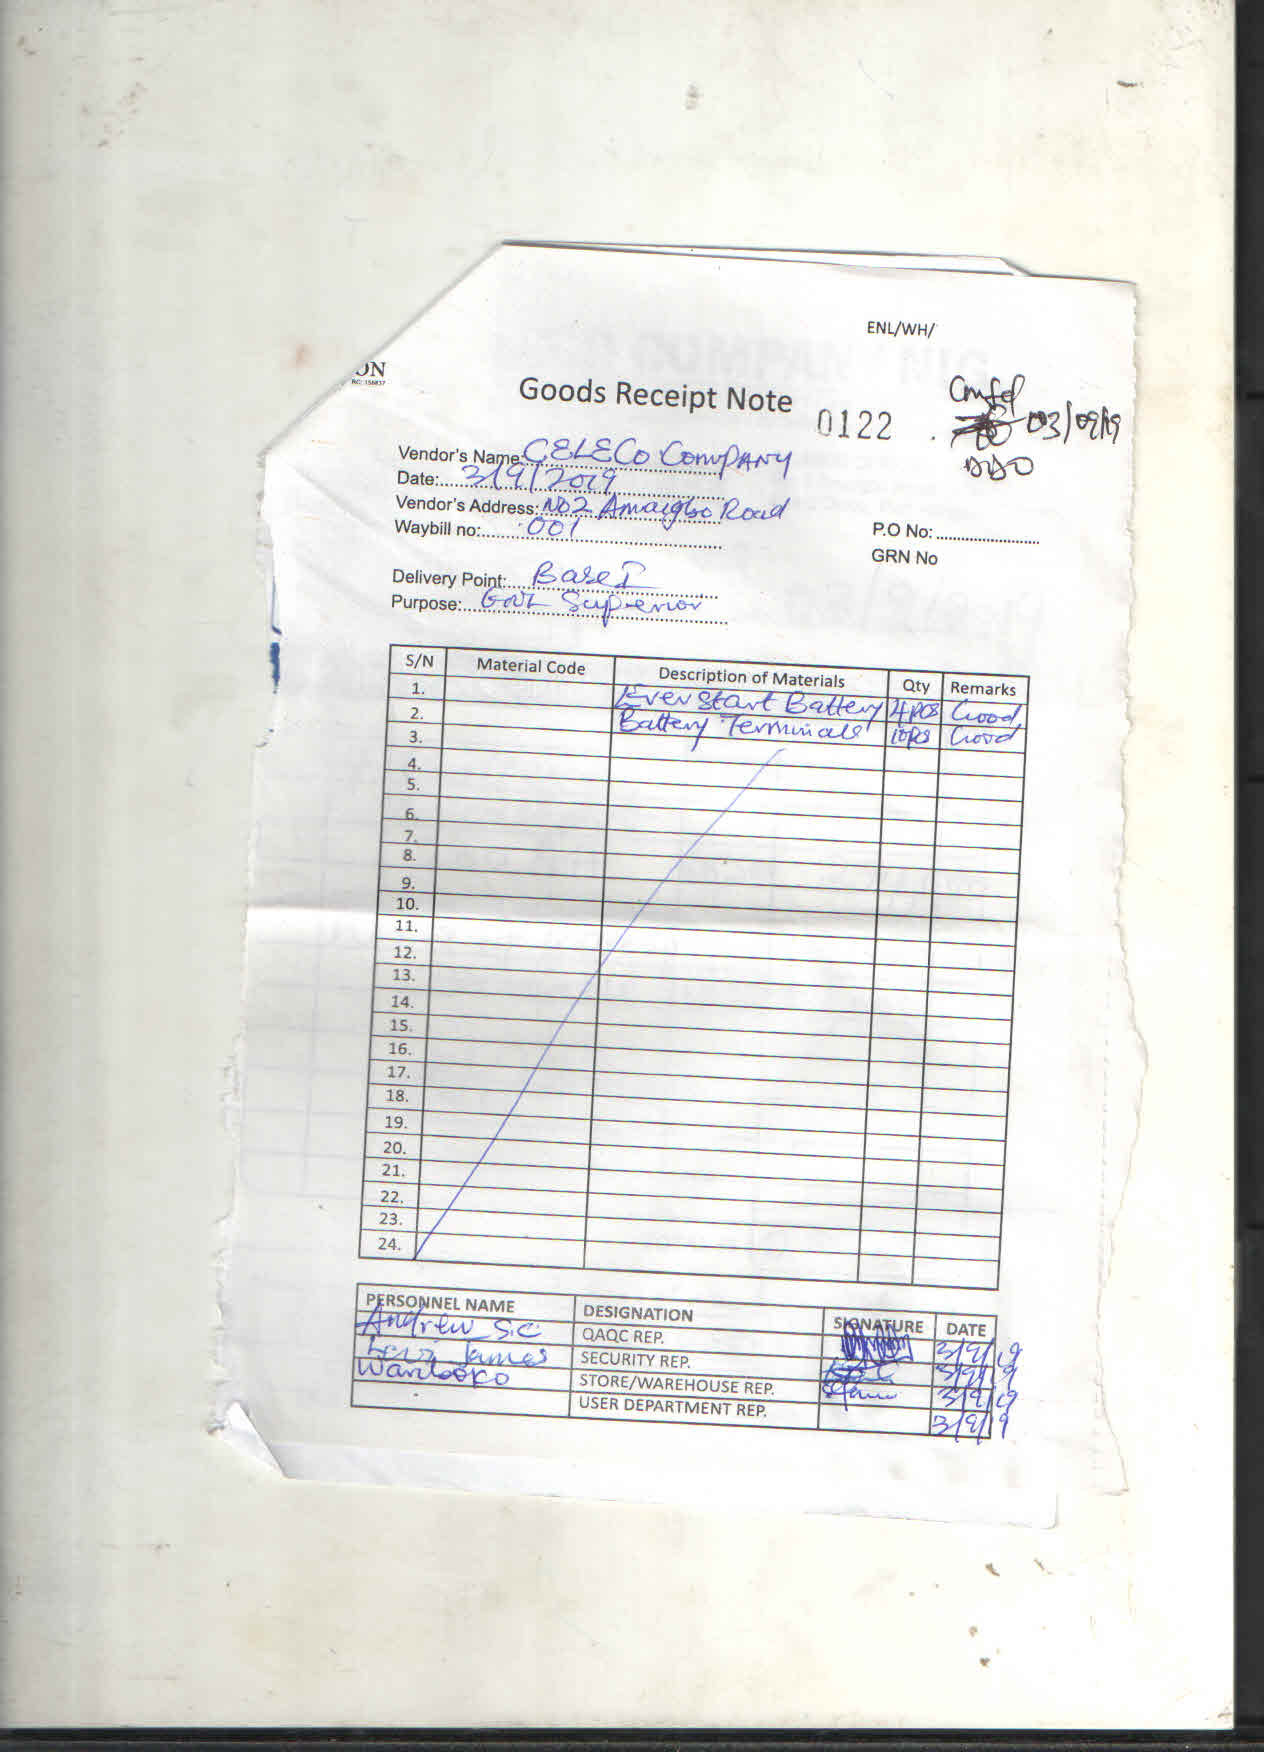 ENL/WH/
ON
RC: 156837
Goods Receipt Note
0122
03/09/19
Vendor's Name: CELECO COMPANY
Date: 3/9/2019
Vendor's Address: NO2 Amaigbo Road
Waybill no: 001
P.O No:
GRN No
Delivery Point: Base I
Purpose: Superior
S/N Material Code Description of Materials Qty Remarks
1. Ever Start Battery 4pcs Good
2. Battery Terminals 10pcs Good
3.
4.
5.
6.
7.
8.
9.
10.
11.
12.
13.
14.
15.
16.
17.
18.
19.
20.
21.
22.
23.
24.
PERSONNEL NAME DESIGNATION SIGNATURE DATE
Andrew S.C QAQC REP. 3/9/19
James SECURITY REP. 3/9/19
STORE/WAREHOUSE REP. 3/9/19
USER DEPARTMENT REP. 3/9/19